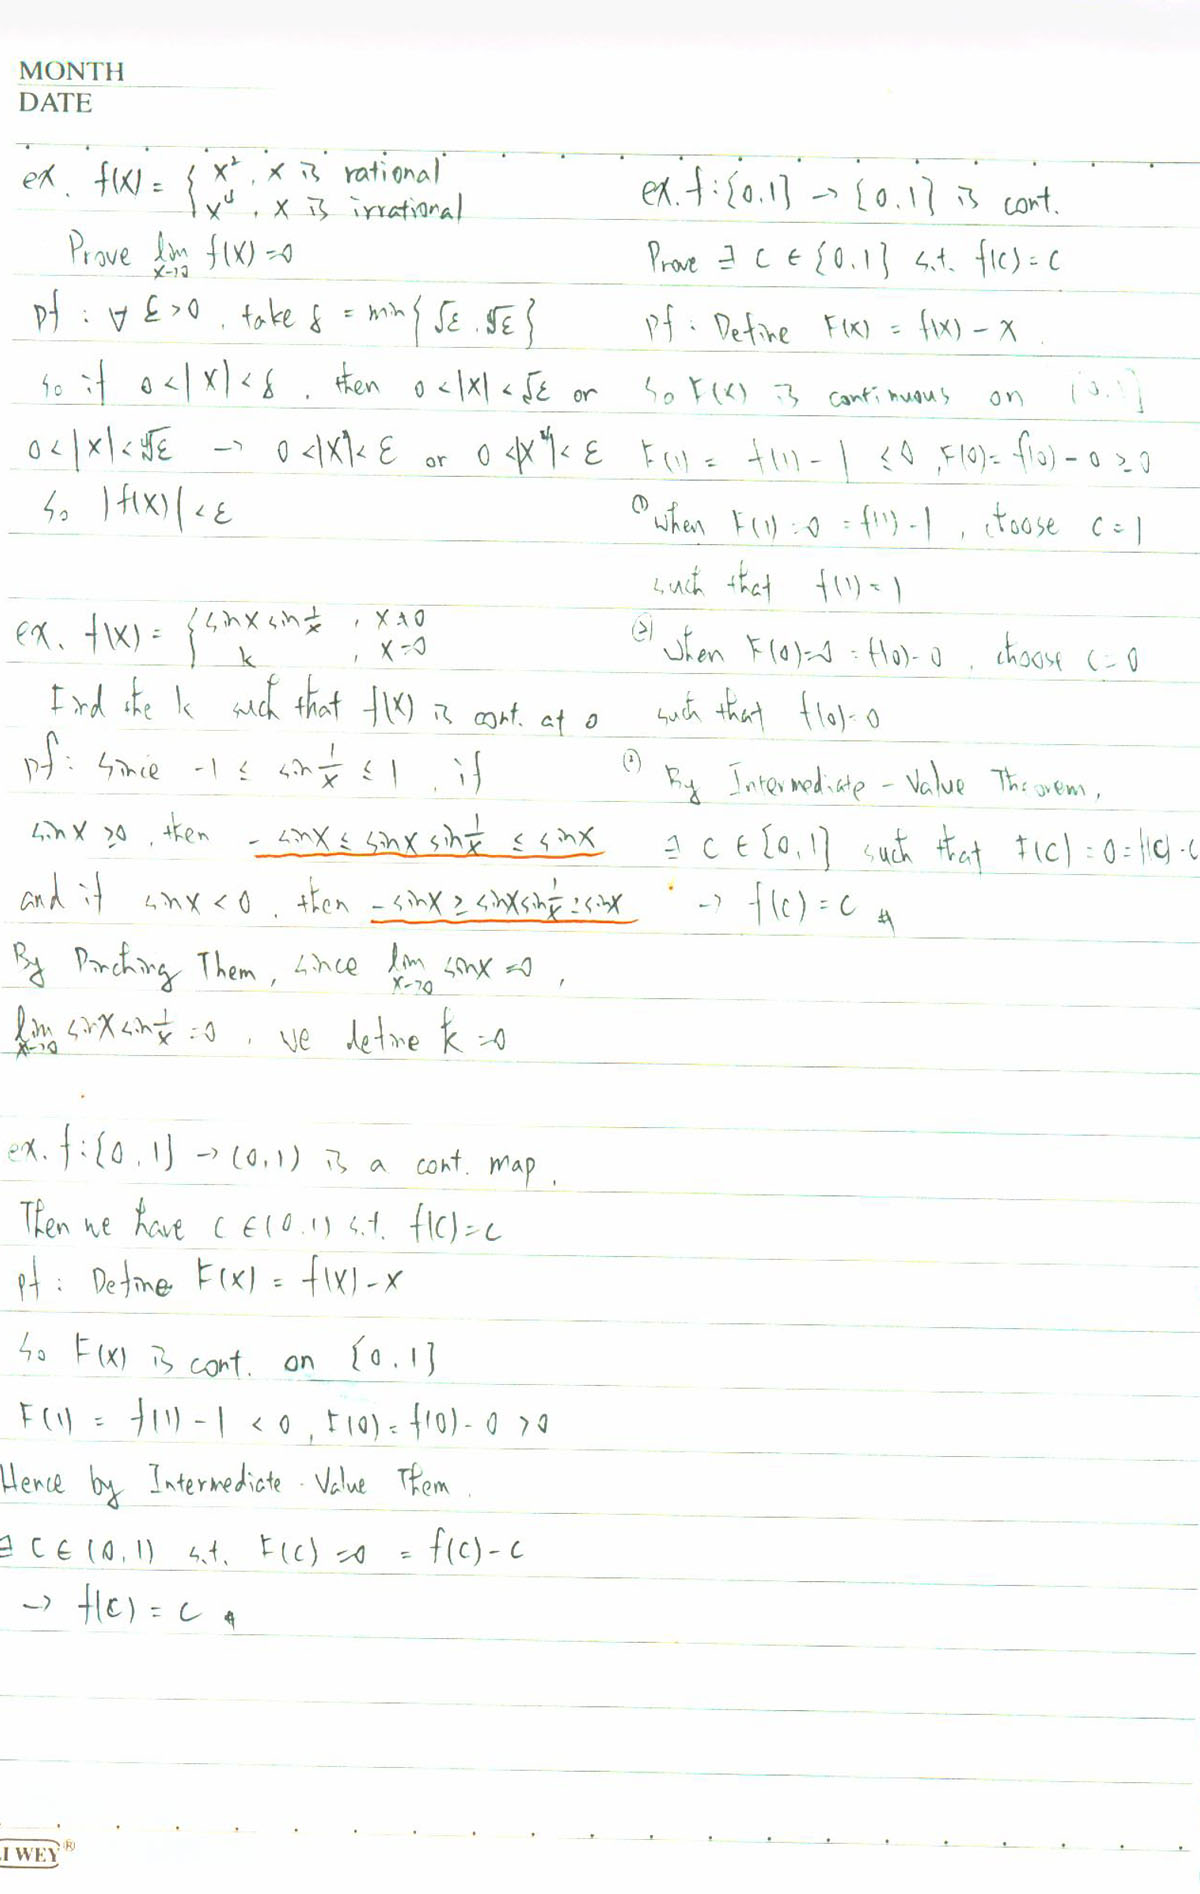 MONTH
DATE
ex. f(x) = { x², x is rational
x⁴, x is irrational
Prove lim x→0 f(x) = 0
pf : ∀ ε > 0, take δ = min{ √ε, ∜ε }
So if 0 < |x| < δ, then 0 < |x| < √ε or
0 < |x| < ∜ε → 0 < |x²| < ε or 0 < |x⁴| < ε
So |f(x)| < ε
ex. f(x) = { sinx sin 1/x , x ≠ 0
k , x = 0
Find the k such that f(x) is cont. at 0
pf : Since -1 ≤ sin 1/x ≤ 1, if
sinx ≥ 0, then -sinx ≤ sinx sin 1/x ≤ sinx
and if sinx < 0, then -sinx ≥ sinx sin 1/x ≥ sinx
By Pinching Them, since lim x→0 sinx = 0,
lim x→0 sinx sin 1/x = 0, we define k = 0
ex. f : [0,1] → (0,1) is a cont. map.
Then we have c ∈ (0,1) s.t. f(c) = c
pf : Define F(x) = f(x) - x
So F(x) is cont. on [0,1]
F(1) = f(1) - 1 < 0, F(0) = f(0) - 0 > 0
Hence by Intermediate-Value Them.
∃ c ∈ (0,1) s.t. F(c) = 0 = f(c) - c
→ f(c) = c #
ex. f : [0,1] → [0,1] is cont.
Prove ∃ c ∈ [0,1] s.t. f(c) = c
pf : Define F(x) = f(x) - x.
So F(x) is continuous on [0,1]
F(1) = f(1) - 1 ≤ 0, F(0) = f(0) - 0 ≥ 0
① when F(1) = 0 = f(1) - 1, choose c = 1
such that f(1) = 1
② when F(0) = 0 = f(0) - 0, choose c = 0
such that f(0) = 0
③ By Intermediate-Value Theorem,
∃ c ∈ [0,1] such that F(c) = 0 = f(c) - c
→ f(c) = c #
I WEY®